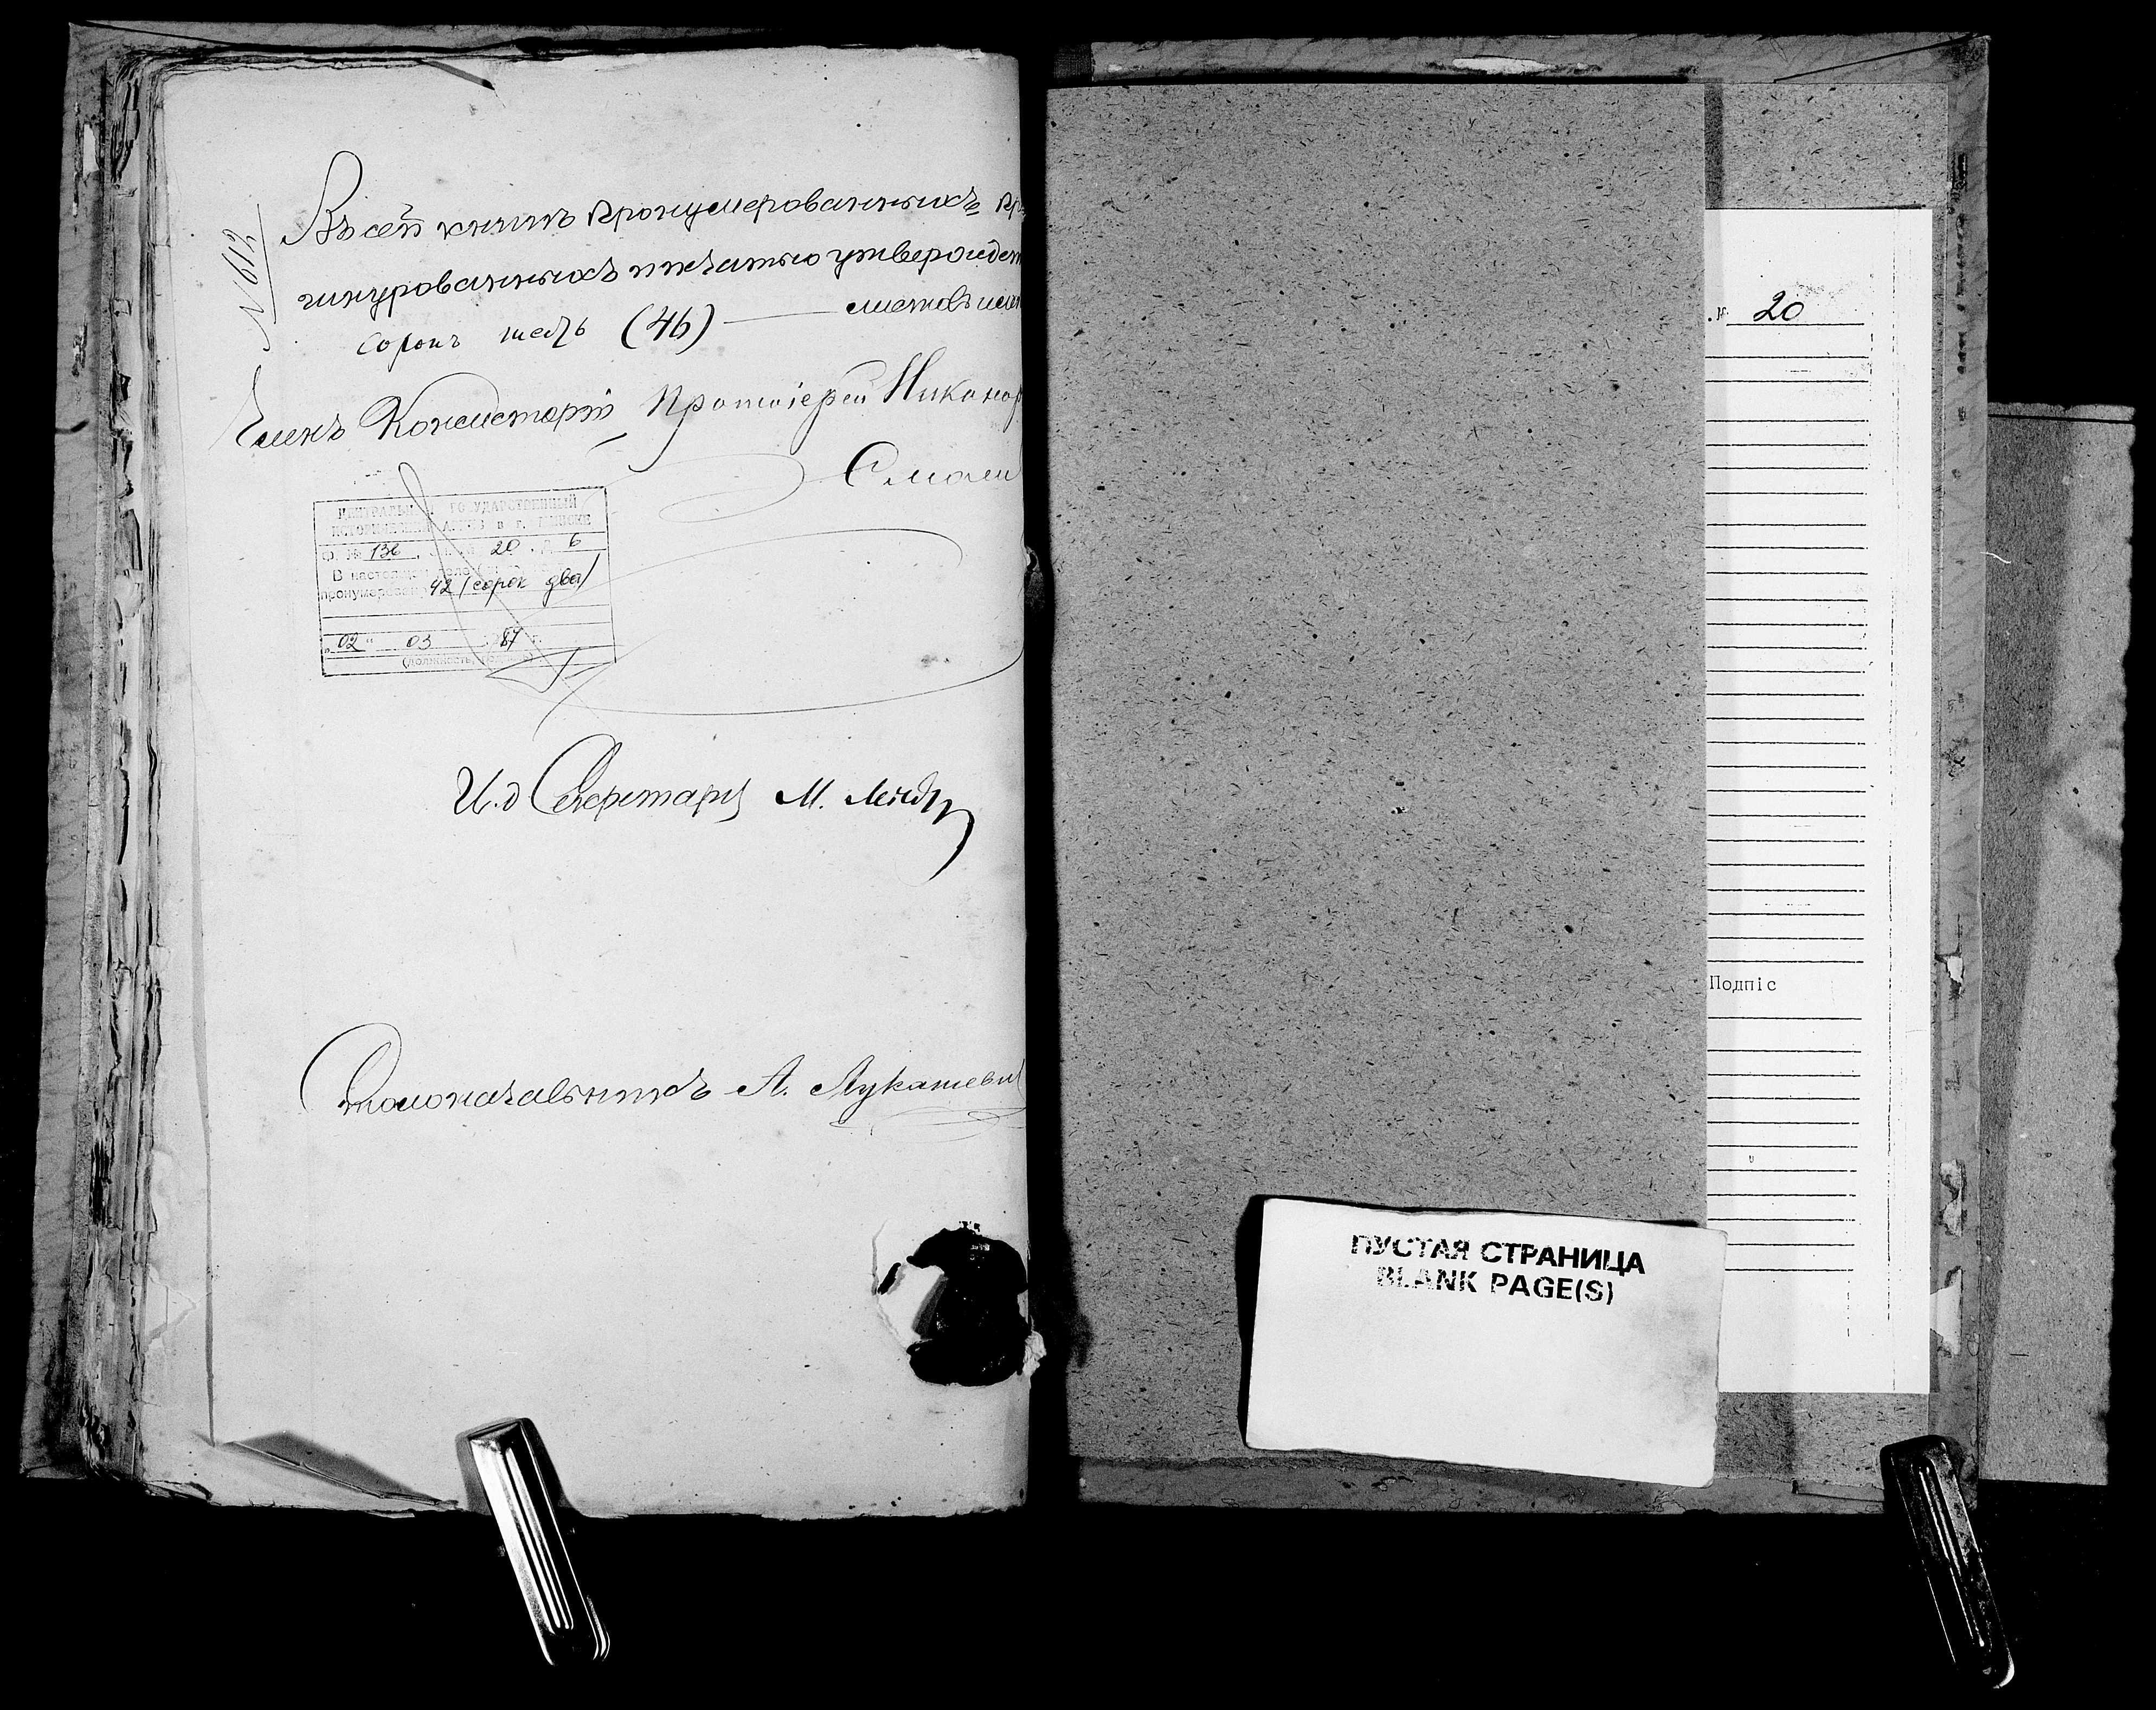 № 612
Въ сей книгѣ пронумерованныхъ, пр
шнурованныхъ и печатью утвержден
сорокъ шесть (46) — листовъ
Членъ Консисторіи Протоіерей Никанор
Смоли
ЦЕНТРАЛЬНЫЙ ГОСУДАРСТВЕННЫЙ
ИСТОРИЧЕСКИЙ АРХИВ в г. МИНСКЕ
Ф. № 136, оп. № 20 д. 6
В настоящем деле
пронумеровано 42 (сорок два)
"02" 03 1987 г.
(должность,
И. д Секретаря М.
Столоначальникъ А. Лукашевич
№ 20
Подпіс
ПУСТАЯ СТРАНИЦА
BLANK PAGE(S)